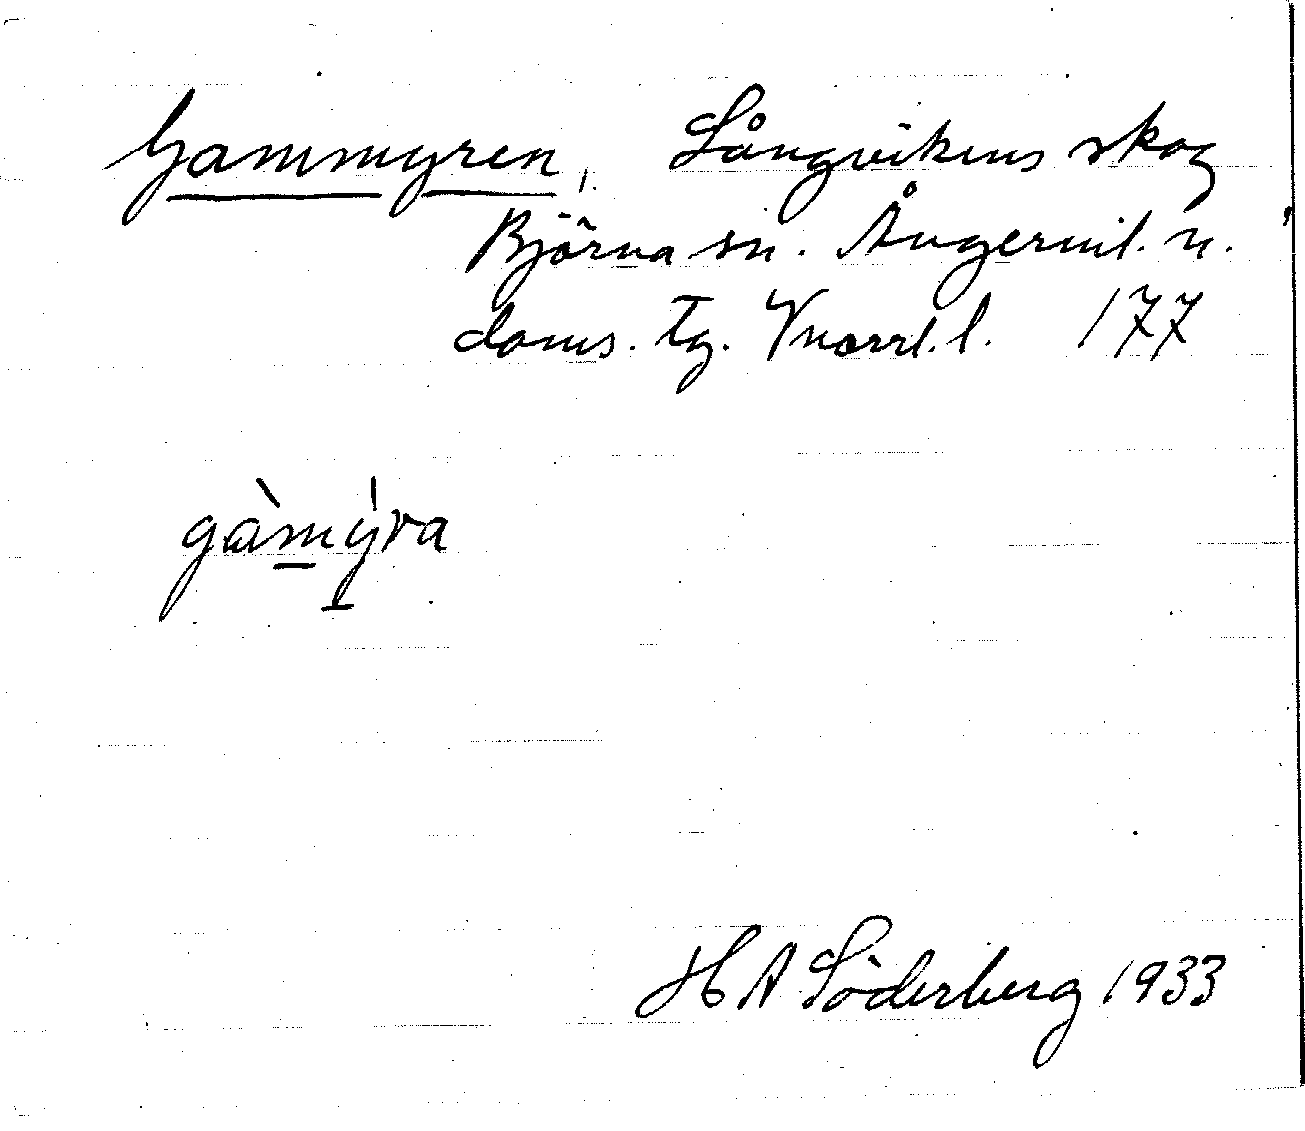 Gammyren, Långvikens skog
Björna sn. Ångerml. n.
doms. tg. Vnorrl. l. 177
gàmýra
H A Söderberg 1933